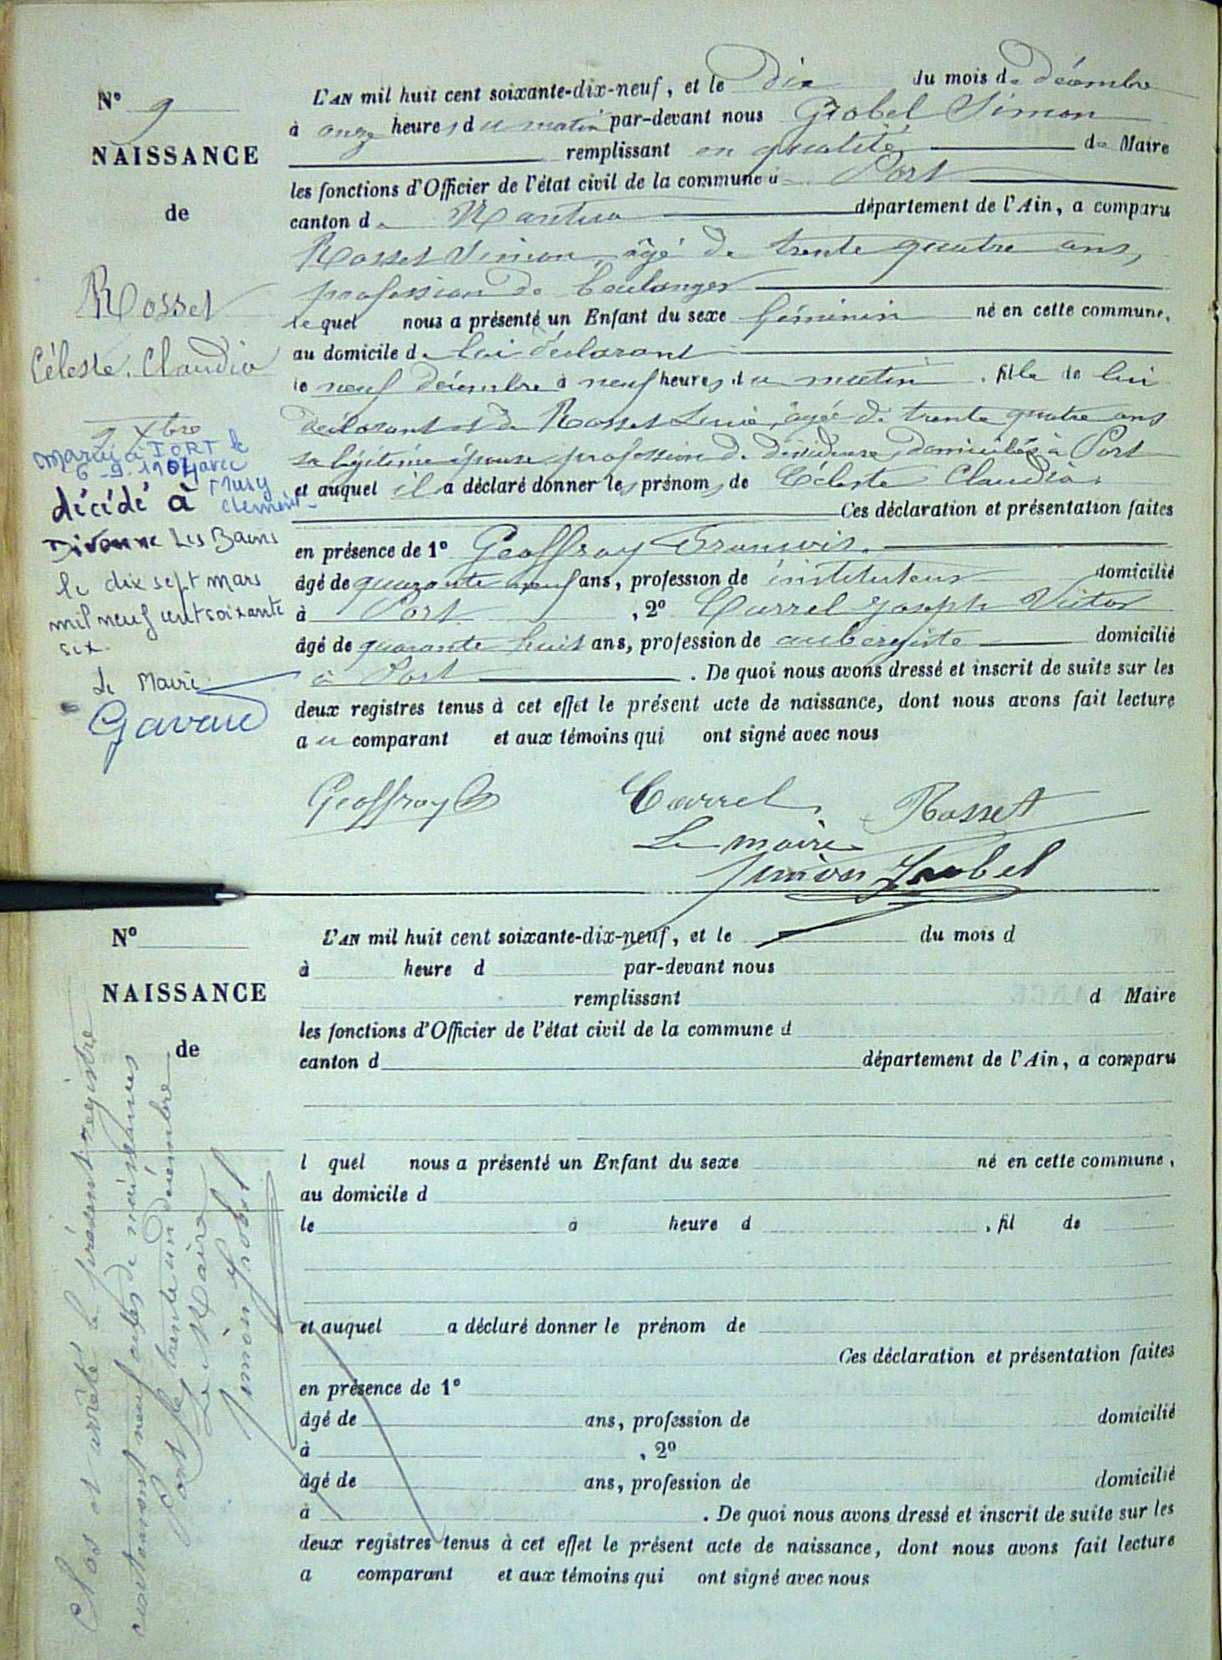 N° 9
NAISSANCE
de
Rosset
Céleste Claudia
9 Xbre
Marié à PORT le
6-9-1904 avec
Musy
Clément
décédé à
Divonne Les Bains
le dix sept mars
mil neuf cent soixante
six.
Le Maire
L'AN mil huit cent soixante-dix-neuf, et le dix du mois de décembre
à onze heures du matin par-devant nous Grobel Simon
remplissant en qualité de Maire
les fonctions d'Officier de l'état civil de la commune de Port
canton de Nantua département de l'Ain, a comparu
Rosset Simon, âgé de trente quatre ans,
profession de boulanger
lequel nous a présenté un Enfant du sexe féminin né en cette commune,
au domicile de lui déclarant
le neuf décembre à neuf heures du matin, fille de lui
déclarant et de Rosset , âgée de trente quatre ans
sa légitime épouse profession de , domiciliés à Port
et auquel il a déclaré donner les prénoms de Céleste Claudia.
Ces déclaration et présentation faites
en présence de 1° Geoffray François.
âgé de quarante neuf ans, profession de instituteur domicilié
à Port , 2° Carrel Joseph Victor
âgé de quarante huit ans, profession de aubergiste domicilié
à Port . De quoi nous avons dressé et inscrit de suite sur les
deux registres tenus à cet effet le présent acte de naissance, dont nous avons fait lecture
au comparant et aux témoins qui ont signé avec nous
Geoffray Carrel Rosset
Le maire
Simon Grobel
N°
NAISSANCE
de
L'AN mil huit cent soixante-dix-neuf, et le du mois d
à heure d par-devant nous
remplissant d Maire
les fonctions d'Officier de l'état civil de la commune d
canton d département de l'Ain, a comparu
l quel nous a présenté un Enfant du sexe né en cette commune,
au domicile d
le à heure d , fil de
et auquel a déclaré donner le prénom de
Ces déclaration et présentation faites
en présence de 1°
âgé de ans, profession de domicilié
à , 2°
âgé de ans, profession de domicilié
à . De quoi nous avons dressé et inscrit de suite sur les
deux registres tenus à cet effet le présent acte de naissance, dont nous avons fait lecture
a comparant et aux témoins qui ont signé avec nous
Clos et arrêté le présent registre
contenant neuf actes de naissances
Port le trente un décembre
Le Maire
Simon Grobel